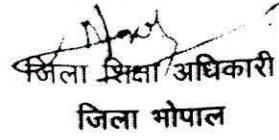 जिला शिक्षा अधिकारी
जिला भोपाल